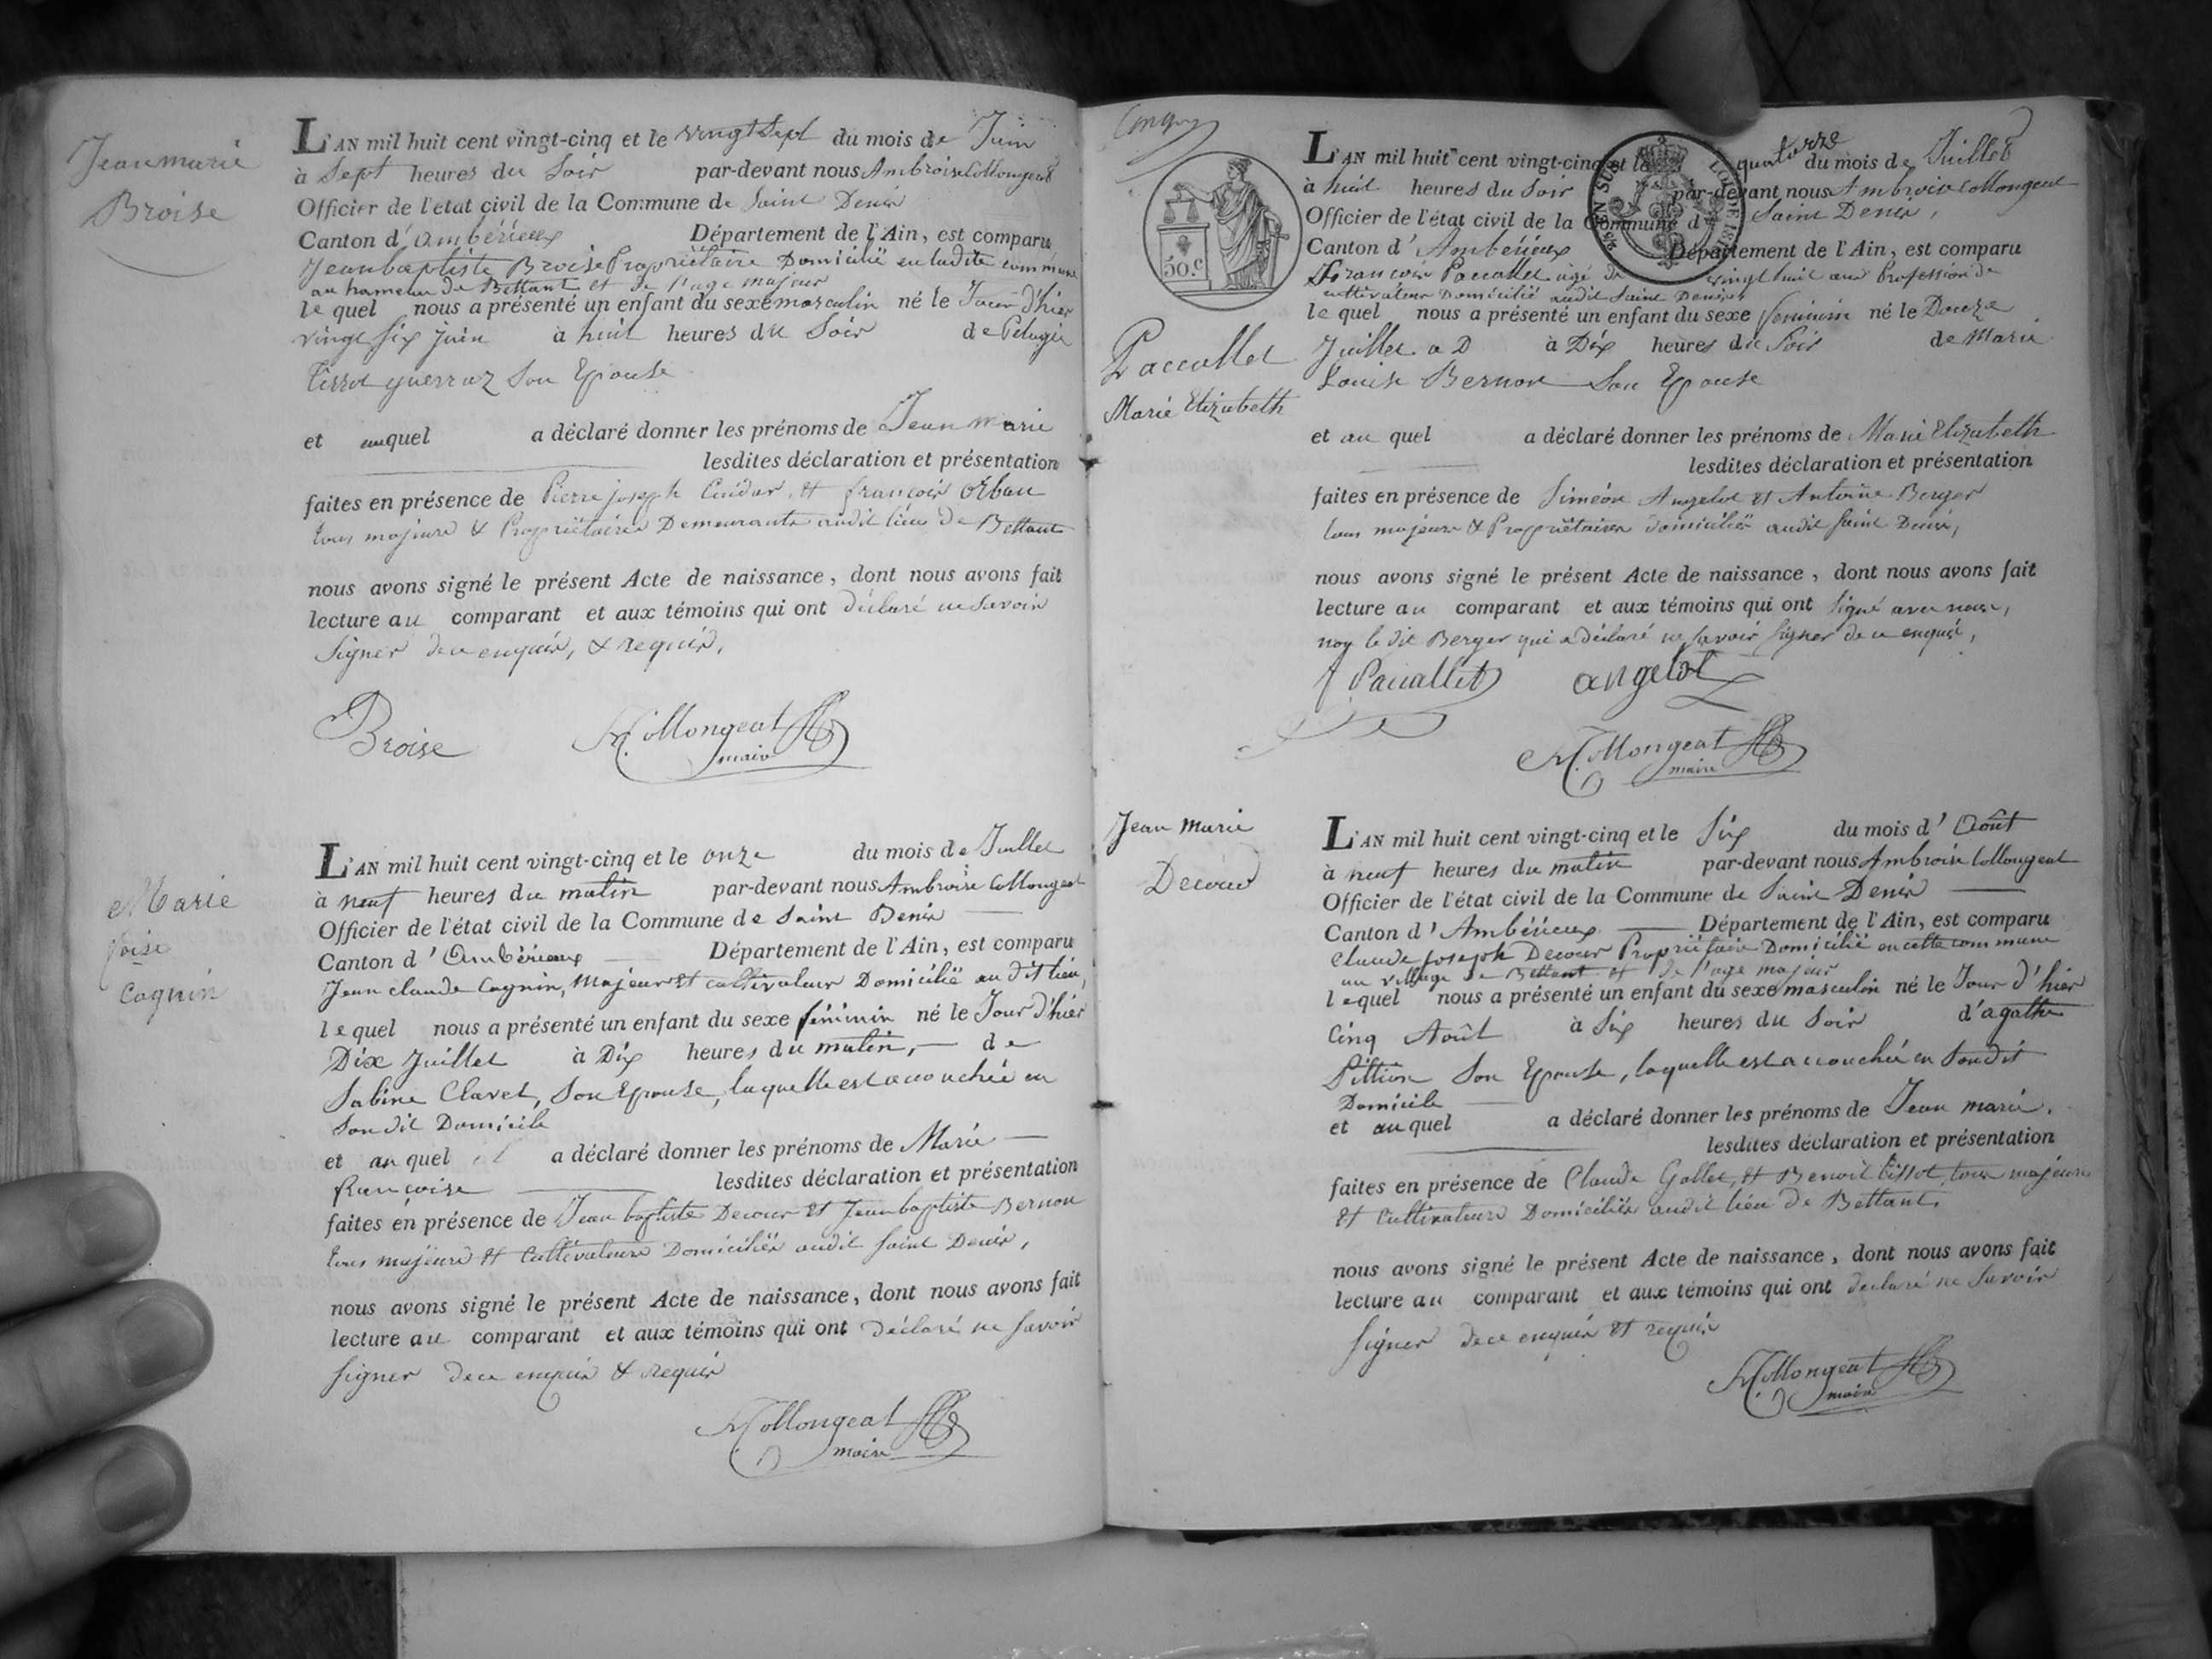 Jean marie
Broise
L'AN mil huit cent vingt-cinq et le vingt sept du mois de Juin
à Sept heures du Soir par-devant nous Ambroise Collongeat
Officier de l'état civil de la Commune de Saint Denis
Canton d'Ambérieux Département de l'Ain, est comparu
Jean baptiste Broise Propriétaire Domicilié en ladite commune
au hameau de Bettant et de l'age majeur
le quel nous a présenté un enfant du sexe masculin né le Jour d'hier
vingt six juin à huit heures du Soir de Pelagie
Tissot guerraz Son Epouse
et auquel a déclaré donner les prénoms de Jean marie
lesdites déclaration et présentation
faites en présence de Pierre joseph et françois Orban
tous majeurs & Propriétaires Demeurants audit lieu de Bettant
nous avons signé le présent Acte de naissance, dont nous avons fait
lecture au comparant et aux témoins qui ont déclaré ne savoir
signer de ce enquis, & requis,
Broise Collongeat
maire
Marie
foise
Cagnin
L'AN mil huit cent vingt-cinq et le onze du mois de Juillet
à neuf heures du matin par-devant nous Ambroise Collongeat
Officier de l'état civil de la Commune de Saint Denis
Canton d'Ambérieux Département de l'Ain, est comparu
Jean claude Cagnin, majeur et cultivateur Domicilié au dit lieu,
le quel nous a présenté un enfant du sexe féminin né le Jour d'hier
Dix Juillet à Dix heures du matin, de
Sabine Clavet, Son Epouse, laquelle est accouchée en
Son dit Domicile
et au quel il a déclaré donner les prénoms de Marie
françoise lesdites déclaration et présentation
faites en présence de Jean baptiste Decour et Jean baptiste Bernon
tous majeurs et Cultivateurs Domiciliés audit Saint Denis,
nous avons signé le présent Acte de naissance, dont nous avons fait
lecture au comparant et aux témoins qui ont déclaré ne savoir
signer de ce enquis & requis
Collongeat
maire
50.c
EN SUS
Paccallet
Marie Elizabeth
L'AN mil huit cent vingt-cinq et le quatorze du mois de Juillet
à huit heures du Soir par-devant nous Ambroise Collongeat
Officier de l'état civil de la Commune d Saint Denis,
Canton d'Ambérieux Département de l'Ain, est comparu
François Paccallet agé de vingt huit ans Profession de
cultivateur Domicilié audit Saint Denis,
le quel nous a présenté un enfant du sexe feminin né le Douze
Juillet a D à Dix heures du Soir de Marie
Louise Bernon Son Epouse
et au quel a déclaré donner les prénoms de Marie Elizabeth
lesdites déclaration et présentation
faites en présence de Siméon Angelot et Antoine Berger
tous majeurs & Propriétaires Domiciliés audit Saint Denis,
nous avons signé le présent Acte de naissance, dont nous avons fait
lecture au comparant et aux témoins qui ont signé avec nous,
non le dit Berger qui a déclaré ne savoir signer de ce enquis,
f Paccallet angelot
Collongeat
maire
Jean Marie
Decour
L'AN mil huit cent vingt-cinq et le Six du mois d'Août
à neuf heures du matin par-devant nous Ambroise Collongeat
Officier de l'état civil de la Commune de Saint Denis
Canton d'Ambérieux Département de l'Ain, est comparu
Claude Joseph Decour Propriétaire Domicilié en cette commune
au village de Bettant et de l'age majeur
lequel nous a présenté un enfant du sexe masculin né le Jour d'hier
Cinq Août à Six heures du Soir d'agathe
Pittion Son Epouse, laquelle est accouchée en Sondit
Domicile
et au quel a déclaré donner les prénoms de Jean marie,
lesdites déclaration et présentation
faites en présence de Claude Gallet, et Benoit Tissot, tous majeurs
et Cultivateurs Domiciliés audit lieu de Bettant,
nous avons signé le présent Acte de naissance, dont nous avons fait
lecture au comparant et aux témoins qui ont déclaré ne savoir
signer de ce enquis et requis
Collongeat
maire